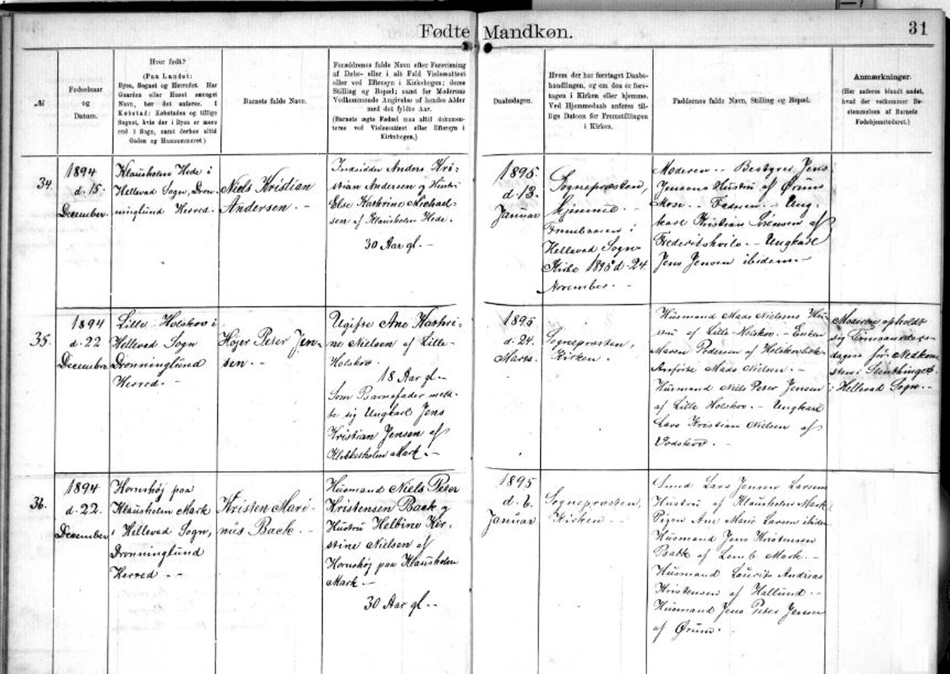 Fødte Mandkøn.
31
№
Fødselsaar
og
Datum.
Hvor født?
(Paa Landet:
Byen, Sognet og Herredet. Har
Gaarden eller Huset særeget
Navn, bør det anføres. I
Købstad: Købstadens og tillige
Sognet, hvis der i Byen er mere
end 1 Sogn, samt derhos altid
Gaden og Husnummeret.)
Barnets fulde Navn.
Forældrenes fulde Navn efter Forevisning
af Døbe- eller i alt Fald Vielsesattest
eller ved Eftersyn i Kirkebogen; deres
Stilling og Bopæl; samt for Moderens
Vedkommende Angivelse af hendes Alder
med det fyldte Aar.
(Barnets ægte Fødsel maa altid dokumen-
teres ved Vielsesattest eller Eftersyn i
Kirkebogen.)
Daabsdagen.
Hvem der har foretaget Daabs-
handlingen, og om den er fore-
tagen i Kirken eller hjemme.
Ved Hjemmedaab anføres til-
lige Datoen for Fremstillingen
i Kirken.
Faddernes fulde Navn, Stilling og Bopæl.
Anmærkninger.
(Her anføres blandt andet,
hvad der vedkommer Be-
stemmelsen af Barnets
Fødehjemstedsret.)
34.
1894
d. 15.
December
Klausholm Hede i
Hellevad Sogn, Dron-
ninglund Herred. -
Niels Kristian
Andersen. -
Indsidder Anders Kri-
stian Andersen og Hustru
Else Kathrine Michael-
sen af Klausholm Hede. -
30 Aar gl. -
1895
d. 13.
Januar
Sognepræsten,
Hjemme. -
Frembaaren i
Hellevad Sogne
Kirke 1895 d. 24.
November. -
Moderen. - Bestyrer Jens
Jensens Hustru af Ørum
Mose. - Faderen - Ung-
karl Kristian Sørensen af
- Ungkarl
Jens Jensen ibidem -
35.
1894
d. 22
December
Lille Holskov i
Hellevad Sogn
Dronninglund
Herred. -
Højer Peter Jen-
sen. -
Ugifte Ane Kathri-
ne Nielsen af Lille-
Holskov. -
18 Aar gl. -
Som Barnefader meld-
te sig Ungkarl Jens
Kristian Jensen af
Mark. -
1895
d. 24.
Marts.
Sognepræsten,
Kirken. -
Husmand Mads Nielsens Hu-
stru af Lille-Holskov. - Enke
Maren Pedersen af
Mads Nielsen. -
Husmand Niels Peter Jensen
af Lille Holskov. - Ungkarl
Lars Kristian Nielsen af
Vodskov. -
Moderen opholdt
sig Timaaneders-
dagen før Nedkom-
sten i
i Hellevad Sogn. -
36.
1894
d. 22.
December
Hornshøj paa
Klausholm Mark
i Hellevad Sogn,
Dronninglund
Herred - -
Kristen Mari-
nus Back. -
Husmand Niels Peter
Kristensen Back og
Hustru Kir-
stine Nielsen af
Hornshøj paa Klausholm
Mark. -
30 Aar gl. -
1895
d. 6.
Januar
Sognepræsten,
Kirken. -
Smed Lars Jensen Larsens
Hustru af Klausholm Mark
Pigen Ane Marie Larsen ibidem
Husmand Jens Kristensen
Back af Mark. -
Husmand Laurits Andreas
Kristensen af Hallund. -
Husmand Jens Peter Jensen
af Ørum. -